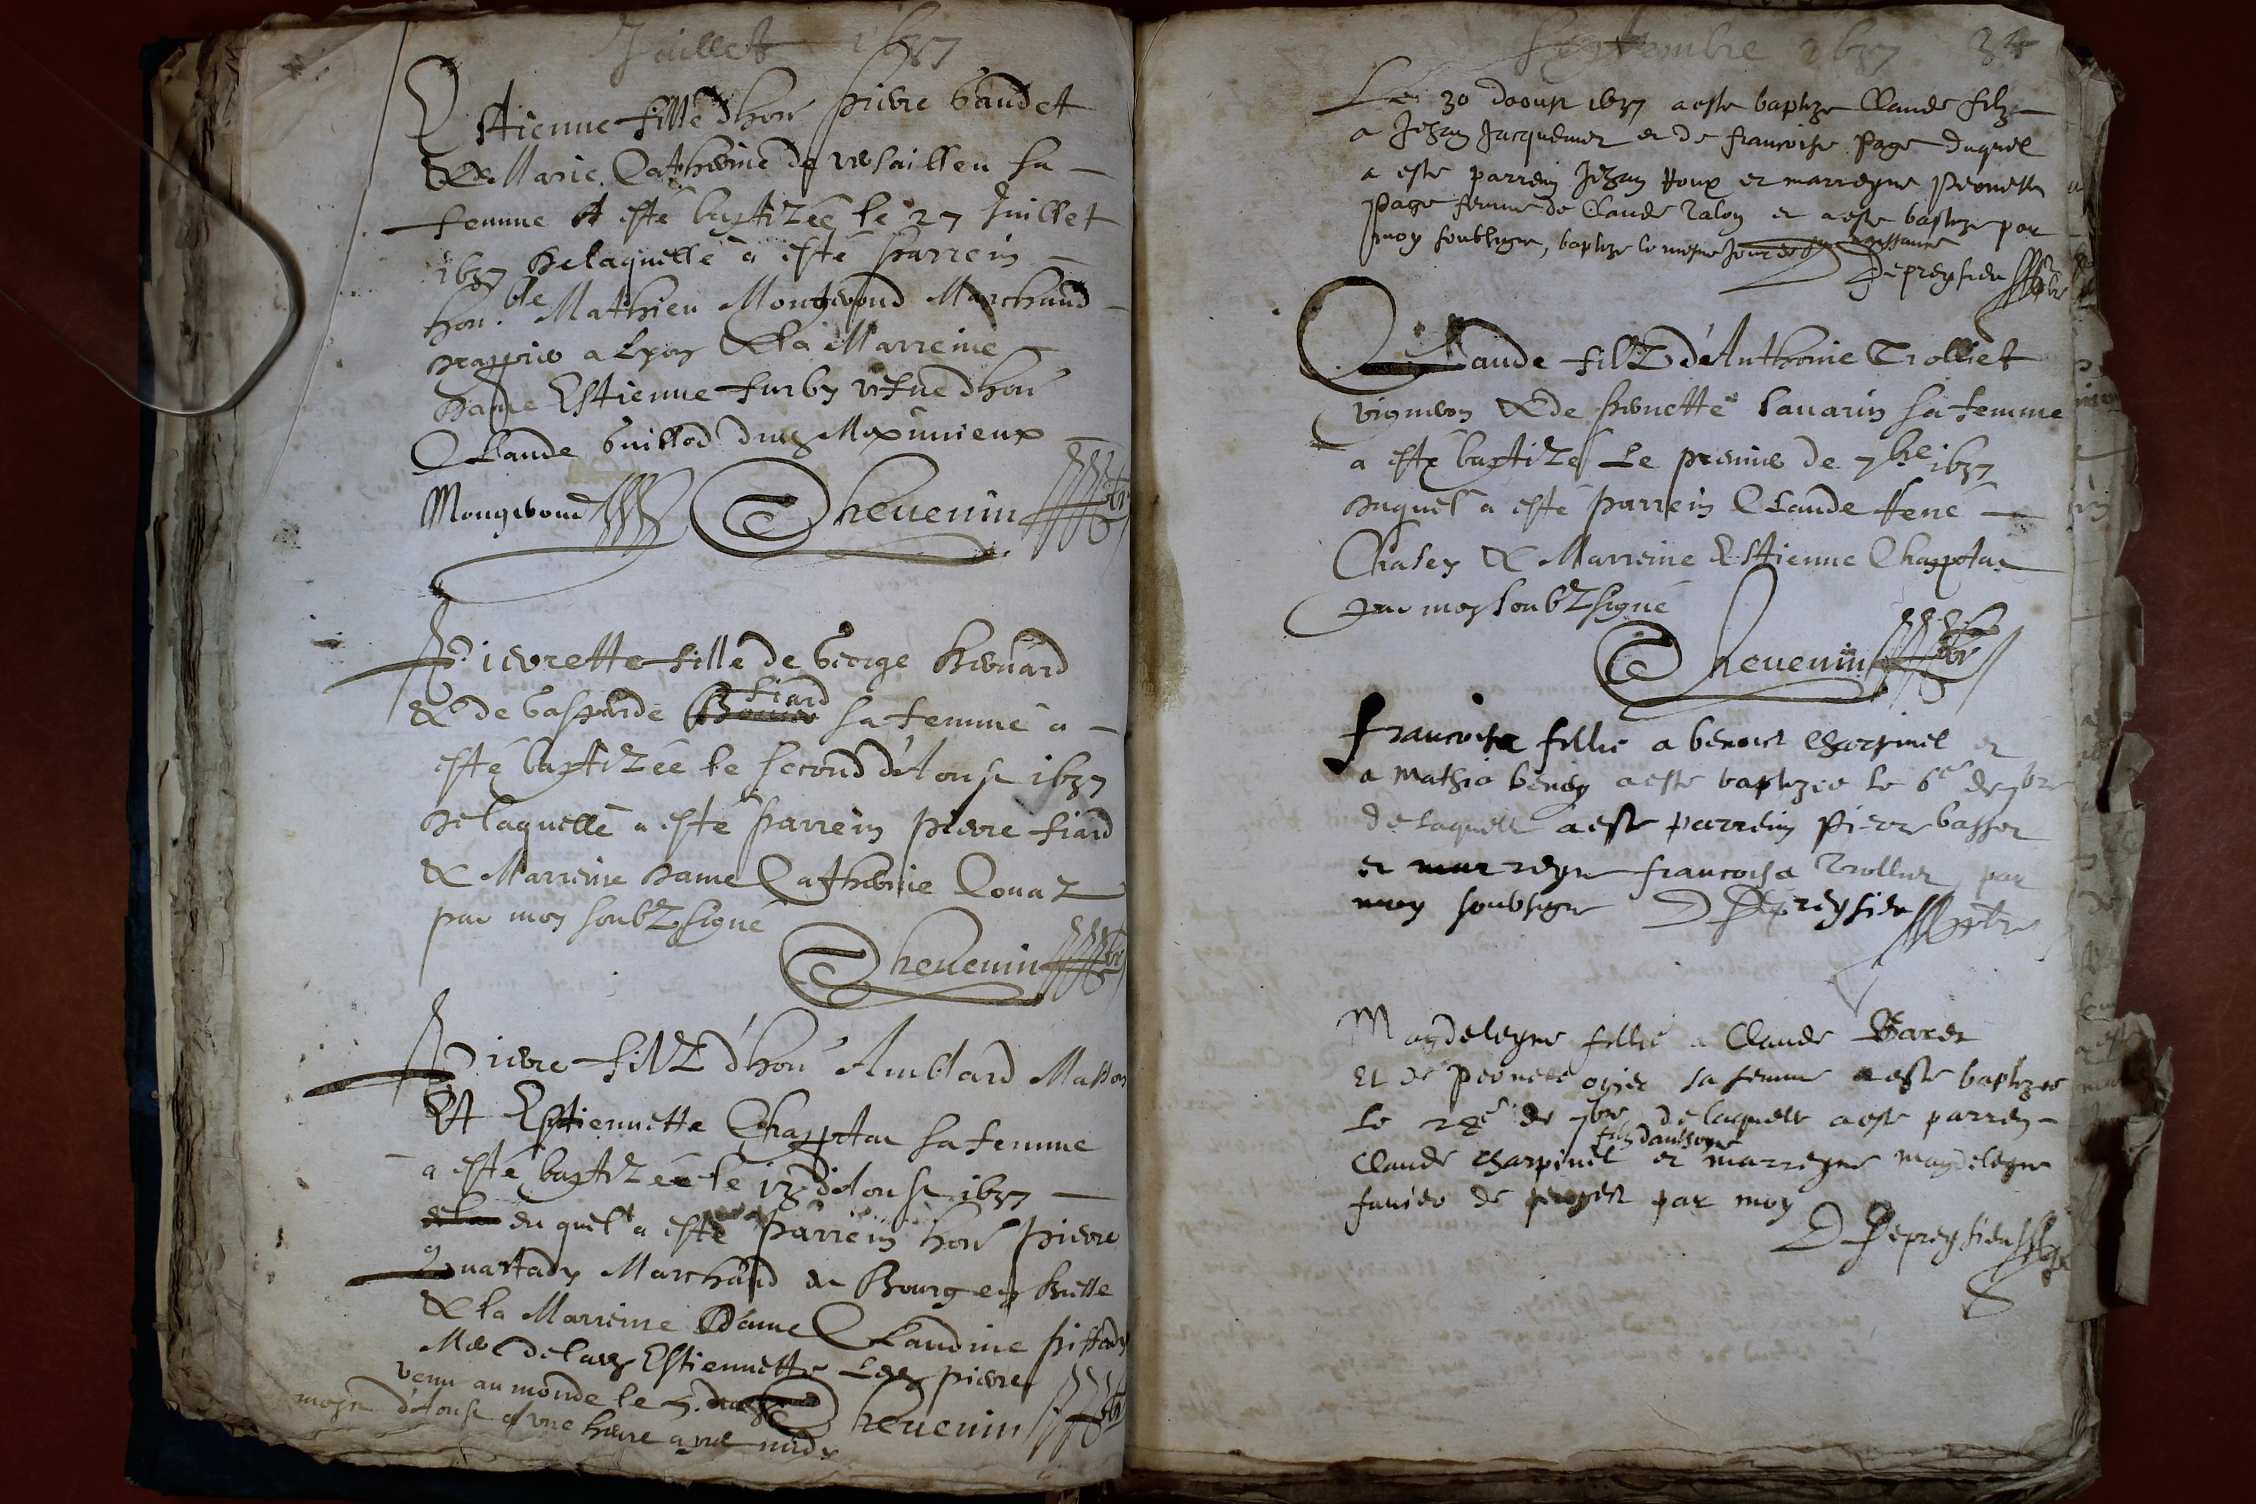 Juillet 1637
Estienne fille dhon Pierre Gaudet
& Marie Catherine de Versailleu sa
femme A esté baptizée le 27 Juillet
1637 Delaquelle a esté parrein
hon.ble Mathieu Mongeroud Marchand
drappier a Lyon & la Marreine
Dame Estienne furby vefue dhon
Claude Guillod du Meximieux
Mongeroud Thevenin pbr
Pierrette fille de George
& de Gasparde fiard sa femme a
esté baptizée le second d'Aoust 1637
Delaquelle a esté parrein Pierre fiard
& Marreine Dame Catherine Couaz
par moy soubzsigné
Thevenin pbr
Pierre filz d'hon Amblard Masson
Et Estiennette Chappotar sa femme
a esté baptizée le 13 d'Aoust 1637
duquel a esté parrein hon Pierre
Marchand de Bourg en
& la Marreine Dame Claudine
Estiennette Pierre
venu au monde le
d'Aoust
Thevenin pbr
Septembre 1637 34
Le 30 daoust 1637 a este baptize Claude filz
a Jehan Jacquemet et de francoise Page duquel
a este parrein Jehan Roux et marreyne Pernette
Page femme de Claude Talon et a este baptize par
moy soubsigne, baptize le mesme jour de sa naissance
Depreysieu pbre
Claude filz d'Anthonie Trolliet
vigneron & de Pernette Sauarin sa femme
a esté baptizé Le premier de 7bre 1637
Duquel a esté parrein Claude René
Chasey & Marreine Estienne Chappotar
par moy soubzsigné
Thevenin pbr
francoise fillie a benoict Charpinel et
a Mathia a este baptizee le 6e de 7bre
de laquelle a este parrein Pierre basset
et marreyne francoise Trolliet par
moy soubsigne Depreysieu pbre
Magdeleyne fillie a Claude
Et de Pernette ogier sa femme a este baptizee
Le 28e de 7bre de laquelle a este parren
filz danthoyne
Claude Charpinel et marreyne magdeleyne
de par moy
Depreysieu pbre